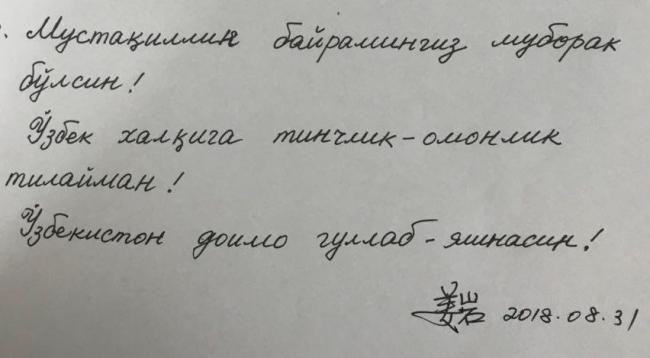 Мустақиллик байрамингиз муборак
бўлсин!
Ўзбек халқига тинчлик-омонлик
тилайман!
Ўзбекистон доимо гуллаб-яшнасин!
姜岩 2018.08.31